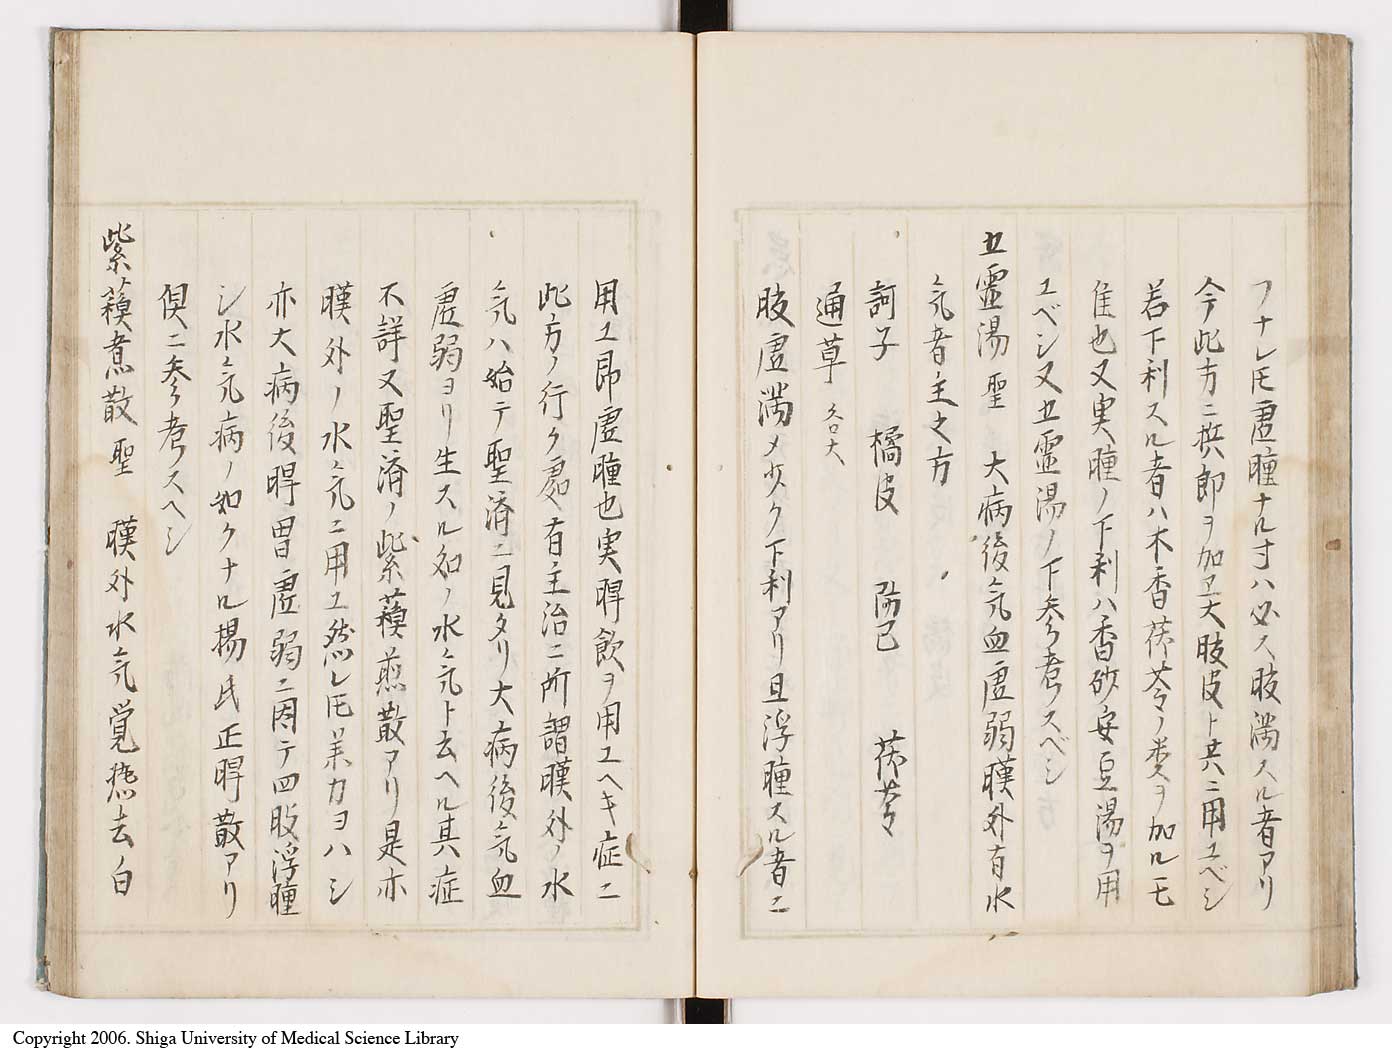 フナレ𪜈虚腫ナル寸ハ必ス肢満スル者アリ
今此方ニ檳郎ヲ加ヱ大肢皮ト共ニ用ユベシ
若下利スル者ハ木香茯苓ノ类ヲ加ルモ
佳也又実腫ノ下利ハ香砂安豆湯ヲ用
ユベシ又五霊湯ノ下参考スベシ
五霊湯 聖 大病後気血虚弱膜外有水
気者主之方
訶子 橘皮 防己 茯苓
通草 各大
肢虚満メ少ク下利アリ且浮腫スル者ニ
用ユ即虚腫也実脾飲ヲ用ユヘキ症ニ
此方ノ行ク処有主治ニ所謂膜外ノ水
気ハ始テ聖済ニ見タリ大病後気血
虚弱ヨリ生スル処ノ水気ト云ヘル其症
不詳又聖済ノ紫蘓煎散アリ是亦
膜外ノ水気ニ用ユ然レ𪜈業カヨハシ
亦大病後脾胃虚弱ニ因テ四肢浮腫
シ水気病ノ如クナル楊氏正脾散アリ
倶ニ参考スヘシ
紫蘓煮散 聖 膜外水気覚𤍽去白
Copyright 2006. Shiga University of Medical Science Library